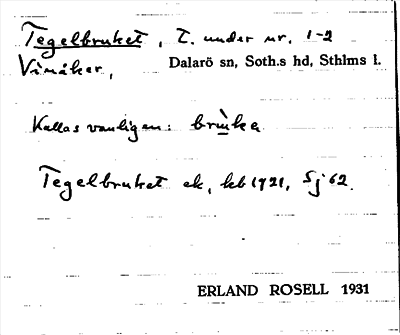 Tegelbruket, t. under nr. 1-2
Vinåker, Dalarö sn, Soth.s hd, Sthlms l.
Kallas vanligen: brùka
Tegelbruket ek, kb 1921, Sj 62.
ERLAND ROSELL 1931